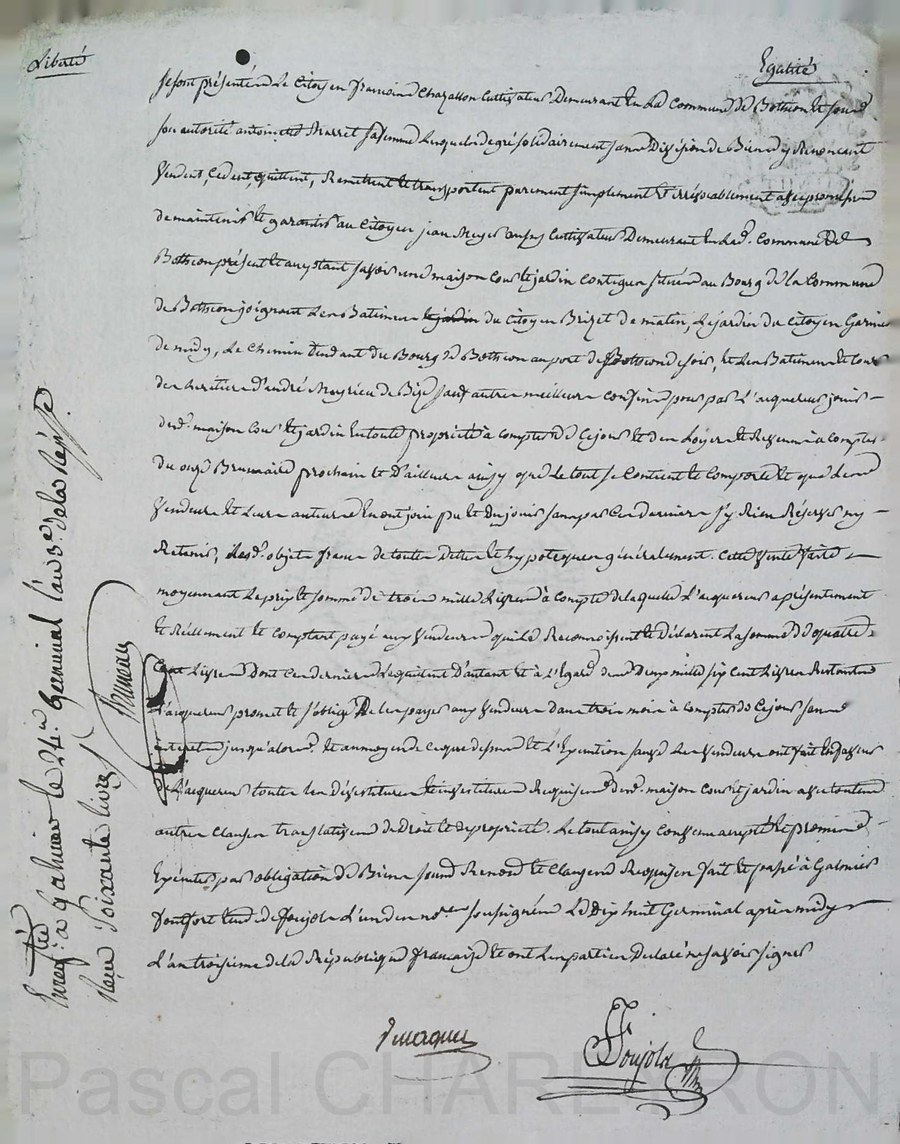 Liberté
Egalité
Se sont présentés Le Citoyen François Chazallon Cultivateur Demeurant En La Commune de Bothéon Et sous
son autorité antoinette sa femme Lesquels de gré solidairement sans Division de Biens y Renonçant
Vendent, Cedent, quittent, Remettent Et transportent purement simplement Et irrévocablement avec promesse
de maintenir Et garantir au Citoyen jean Cultivateur Demeurant En Lad. Commune de
Bothéon présent Et acceptant savoir une maison Cour Et jardin Contigus situés au Bourg de la Commune
de Bothéon joignant Les Batiments du Citoyen Brizet de matin, Le jardin du Citoyen Garnier
de midy, Le Chemin tendant du Bourg de Botheon au port de Botheon de soir, Et Les Batiments Et Cour
des heritiers d'andré de Bize sauf autres meilleurs confins pour par L'acquereur jouir
desd. maison Cour Et jardin En toute propriété à compter de Ce jour Et des Loyers Et Revenus à Compter
du onze Brumaire prochain Et D'ailleurs ainsy que Le tout se Contient Et Comporte Et que Les
Vendeurs Et Leurs auteurs En ont joui pu Et Du jouir sans par Ces derniers s'y Rien Réserver ny
Retenir, Lesd. objets francs de toutes Dettes Et hypoteques généralement. Cette Vente faite
moyennant Le prix Et somme de trois mille Livres à Compte de laquelle L'acquereur a présentement
Et Réellement Et Comptant payé aux Vendeurs qui Le Reconnoissent Et Déclarent La somme de quatre
Cent Livres Dont Ces derniers L'equittent D'autant Et à L'Egard des Deux mille six Cent Livres Restantes
L'acquereur promet Et s'oblige De les payer aux Vendeurs Dans trois mois à Compter de Ce jour sans
interet jusqu'alors. Et au moyen de Ce que dessus Et L'Exécution sauve Les Vendeurs ont fait En faveur
De L'acquereur toutes Les Dévestitures Et investitures Requises desd. maison Cour Et jardin avec toutes
autres Clauses translatives de Droit Et de propriété. Le tout ainsy Convenu accepté Et promis
Exécuter par obligation de Biens Renond Et Clauses Requises fait Et passé à Galmier
Fontfort Etude de Foujols L'un des nores soussignés Le Dix huit Germinal après midy
L'an troisième de la République française Et ont Les parties Déclaré ne savoir signer
Foujols
Enregistré à Galmier le 24me Germinal l'an 3e. de la Répse.
Reçu Soixante livres